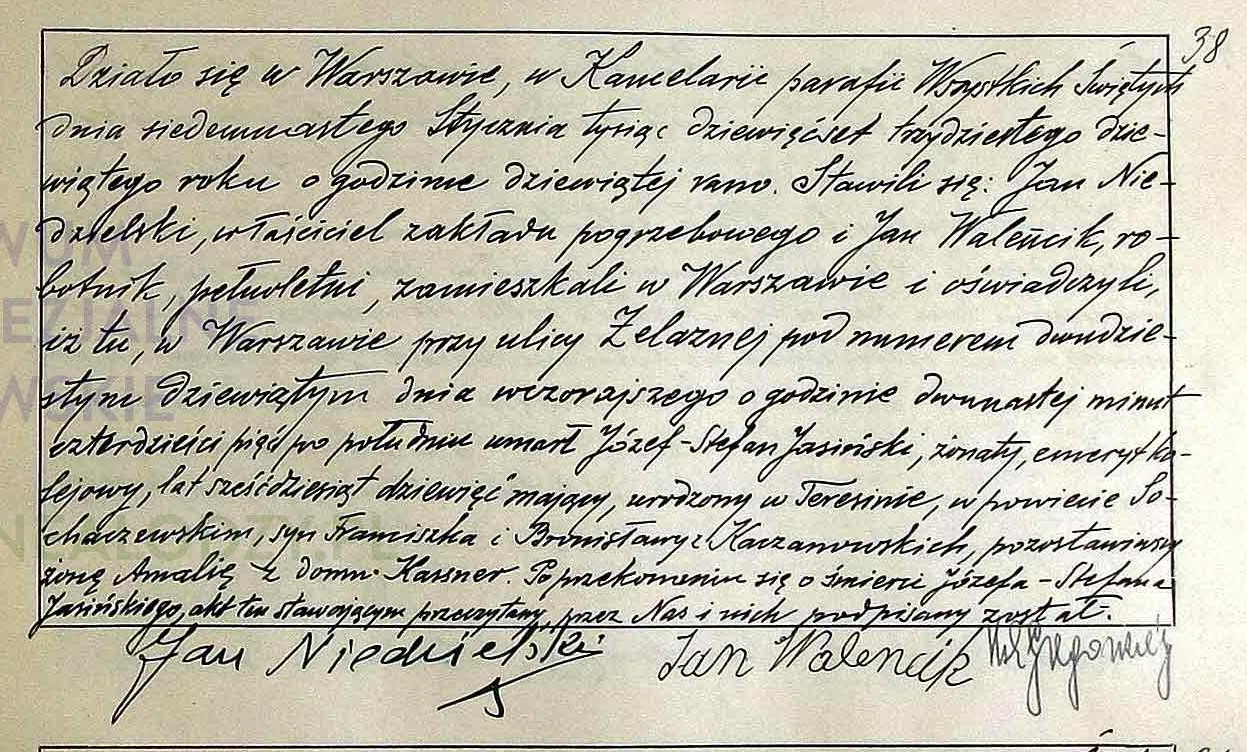 38
Działo się w Warszawie, w Kancelarii parafii Wszystkich Świętych
dnia siedemnastego Stycznia tysiąc dziewięćset trzydziestego dzie-
wiątego roku o godzinie dziewiątej rano. Stawili się: Jan Nie-
dzielski, właściciel zakładu pogrzebowego i Jan Waleńcik, ro-
botnik, pełnoletni, zamieszkali w Warszawie i oświadczyli,
iż tu, w Warszawie przy ulicy Żelaznej pod numerem dwudzie-
stym dziewiątym dnia wczorajszego o godzinie dwunastej minut
czterdzieści pięć po południu umarł Józef-Stefan Jasiński, żonaty, emeryt ko-
lejowy, lat sześćdziesiąt dziewięć mający, urodzony w Teresinie, w powiecie So-
chaczewskim, syn Franciszka i Bronisławy z Kaczanowskich, pozostawiwszy
żonę Amalię z domu Kassner. Po przekonaniu się o śmierci Józefa-Stefana
Jasińskiego, akt ten stawającym przeczytany, przez Nas i nich podpisany został.
Jan Niedzielski Jan Walencik
WUM
EZJALNE
WSKIE